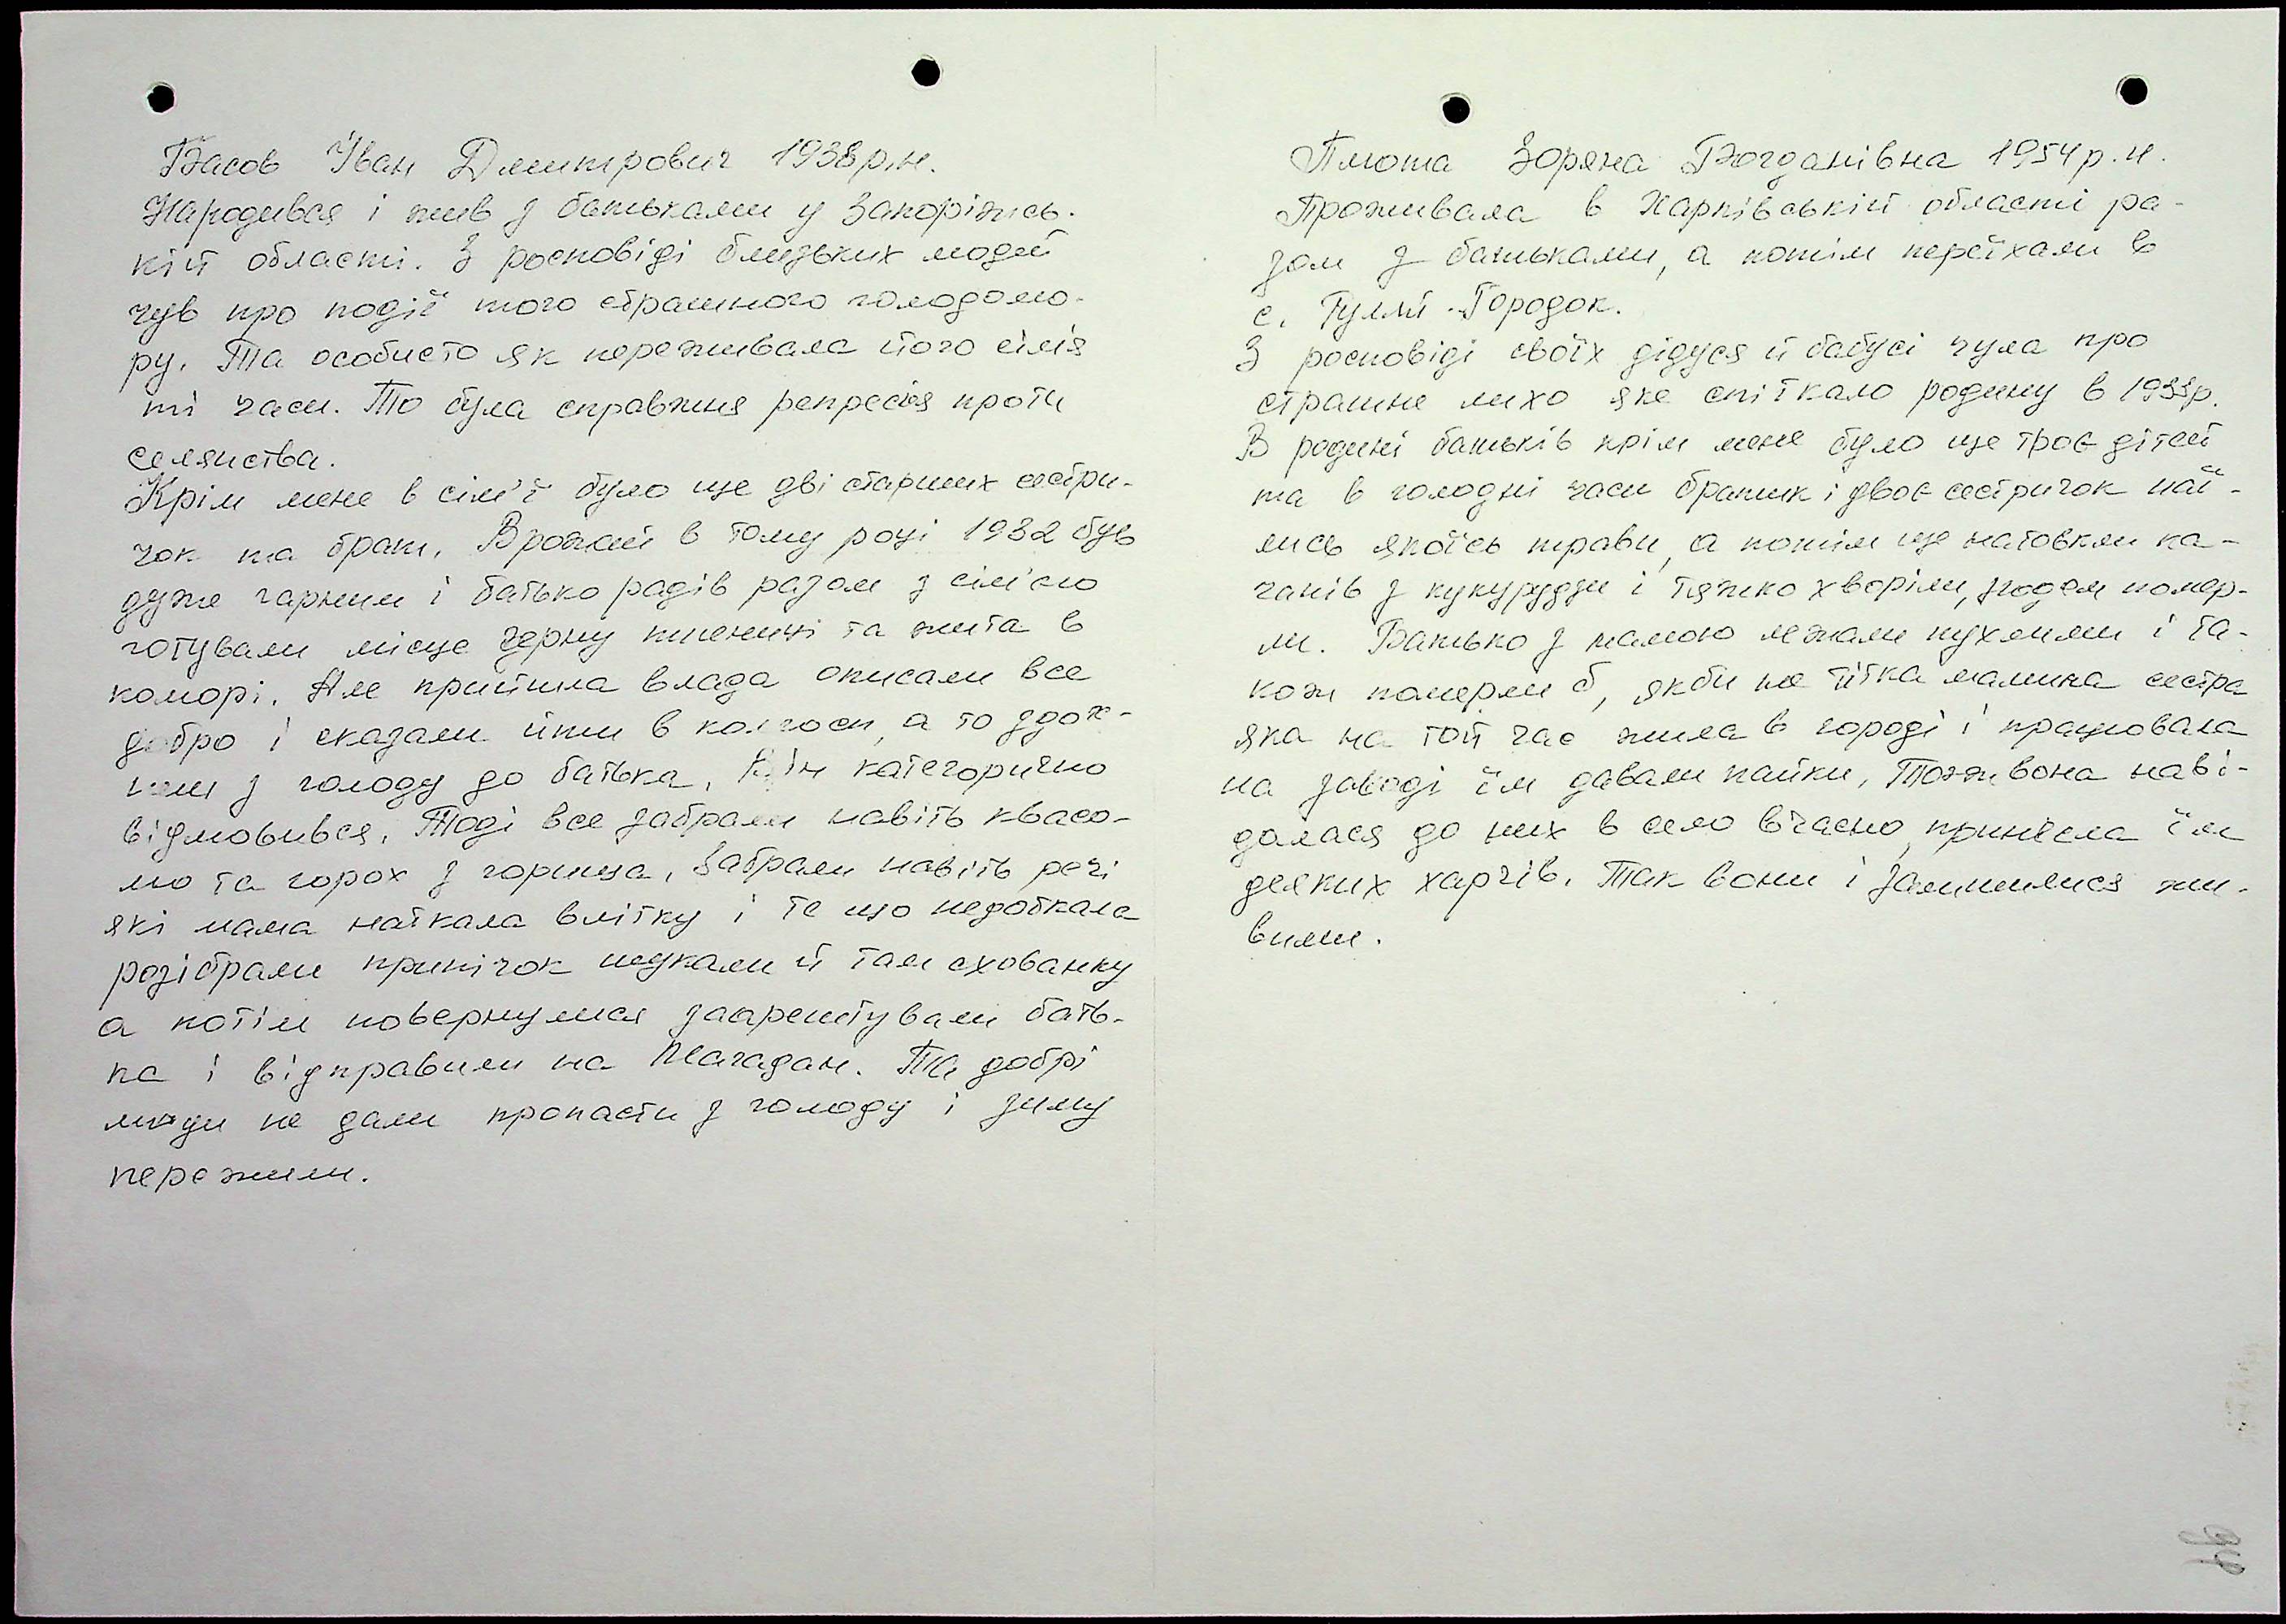 Басов Іван Дмитрович 1938 р.н.
Народився і жив з батьками у Запорізьсь-
кій області. З росповіді близьких людей
чув про події того страшного голодомо-
ру. Та особисто як переживала його сім'я
ті часи. То була справжня репресія проти
селянства.
Крім мене в сім'ї було ще дві старших сестри-
чок та брат. Врожай в тому році 1932 був
дуже гарним і батько радів разом з сім'єю
готували місце зерну пшениці та жита в
коморі. Але прийшла влада описали все
добро і сказали йти в колгосп, а то здох-
неш з голоду до батька. Він категорично
відмовився. Тоді все забрали навіть квасо-
лю та горох з горища. Забрали навіть речі
які мама наткала влітку і те що недоткала
розібрали припічок шукали й там схованку
а потім повернулися заарештували бать-
ка і відправили на Магадан. Та добрі
люди не дали пропасти з голоду і зиму
пережили.
Плюта Зоряна Богданівна 1954 р.н.
Проживала в Харківській області ра-
зом з батьками, а потім переїхали в
с. Гуляй-Городок.
З росповіді своїх дідуся й бабусі чула про
страшне лихо яке спіткало родину в 1933р.
В родині батьків крім мене було ще троє дітей
та в голодні часи братик і двоє сестричок наї-
лись якоїсь трави, а потім ще натовкли ка-
чанів з кукурудзи і тяжко хворіли, згодом помер-
ли. Батько з мамою лежали пухлими і та-
кож померли б, якби не тітка мамина сестра
яка на той час жила в городі і працювала
на заводі їм давали пайки. Тож вона наві-
далася до них в село вчасно, принесла їм
деяких харчів. Так вони і залишилися жи-
вими.